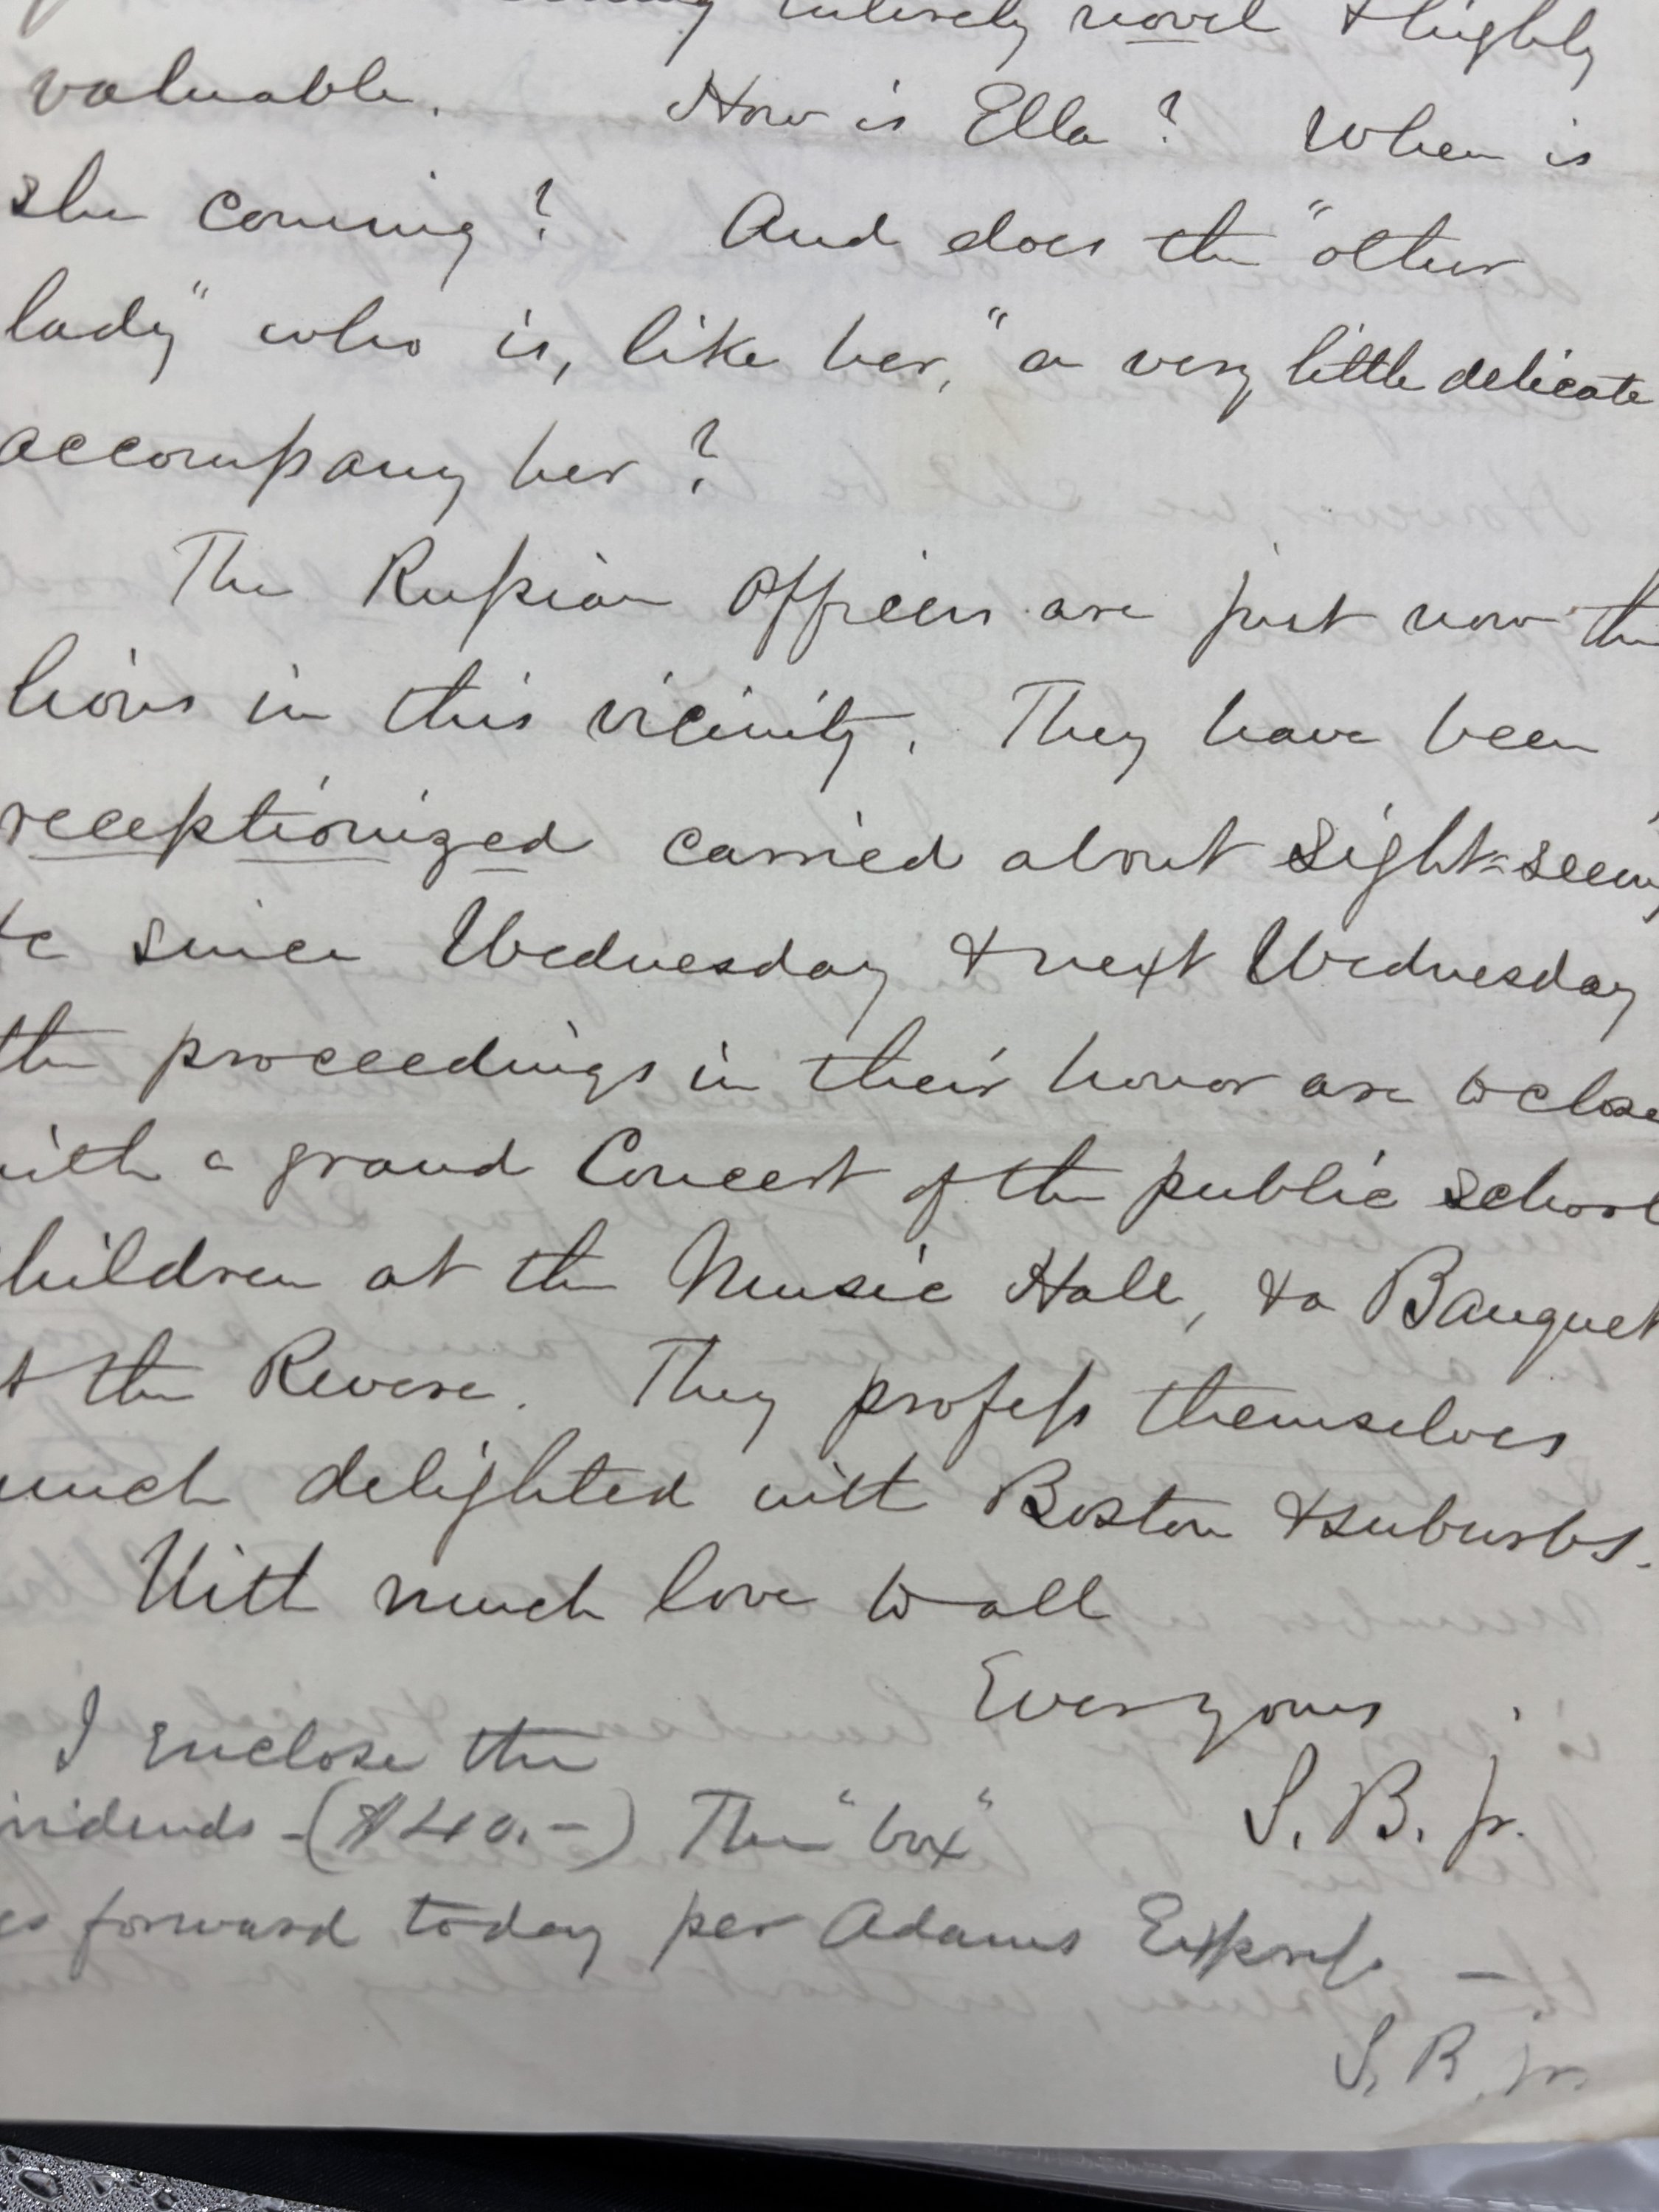 entirely novel & highly
valuable. How is Ella? When is
she coming? And does the "other
lady" who is, like her, "a very little delicate
accompany her?
The Russian Officers are just now the
lions in this vicinity. They have been
receptionized carried about sight-seeing
&c since Wednesday & next Wednesday
the proceedings in their honor are to close
with a grand Concert of the public school
children at the Music Hall, & a Banquet
at the Revere. They profess themselves
much delighted with Boston & suburbs.
With much love to all
Ever yours
S. B. Jr.
I enclose the
dividends - ($40.-) The "box"
goes forward today per Adams Express —
S. B. Jr.